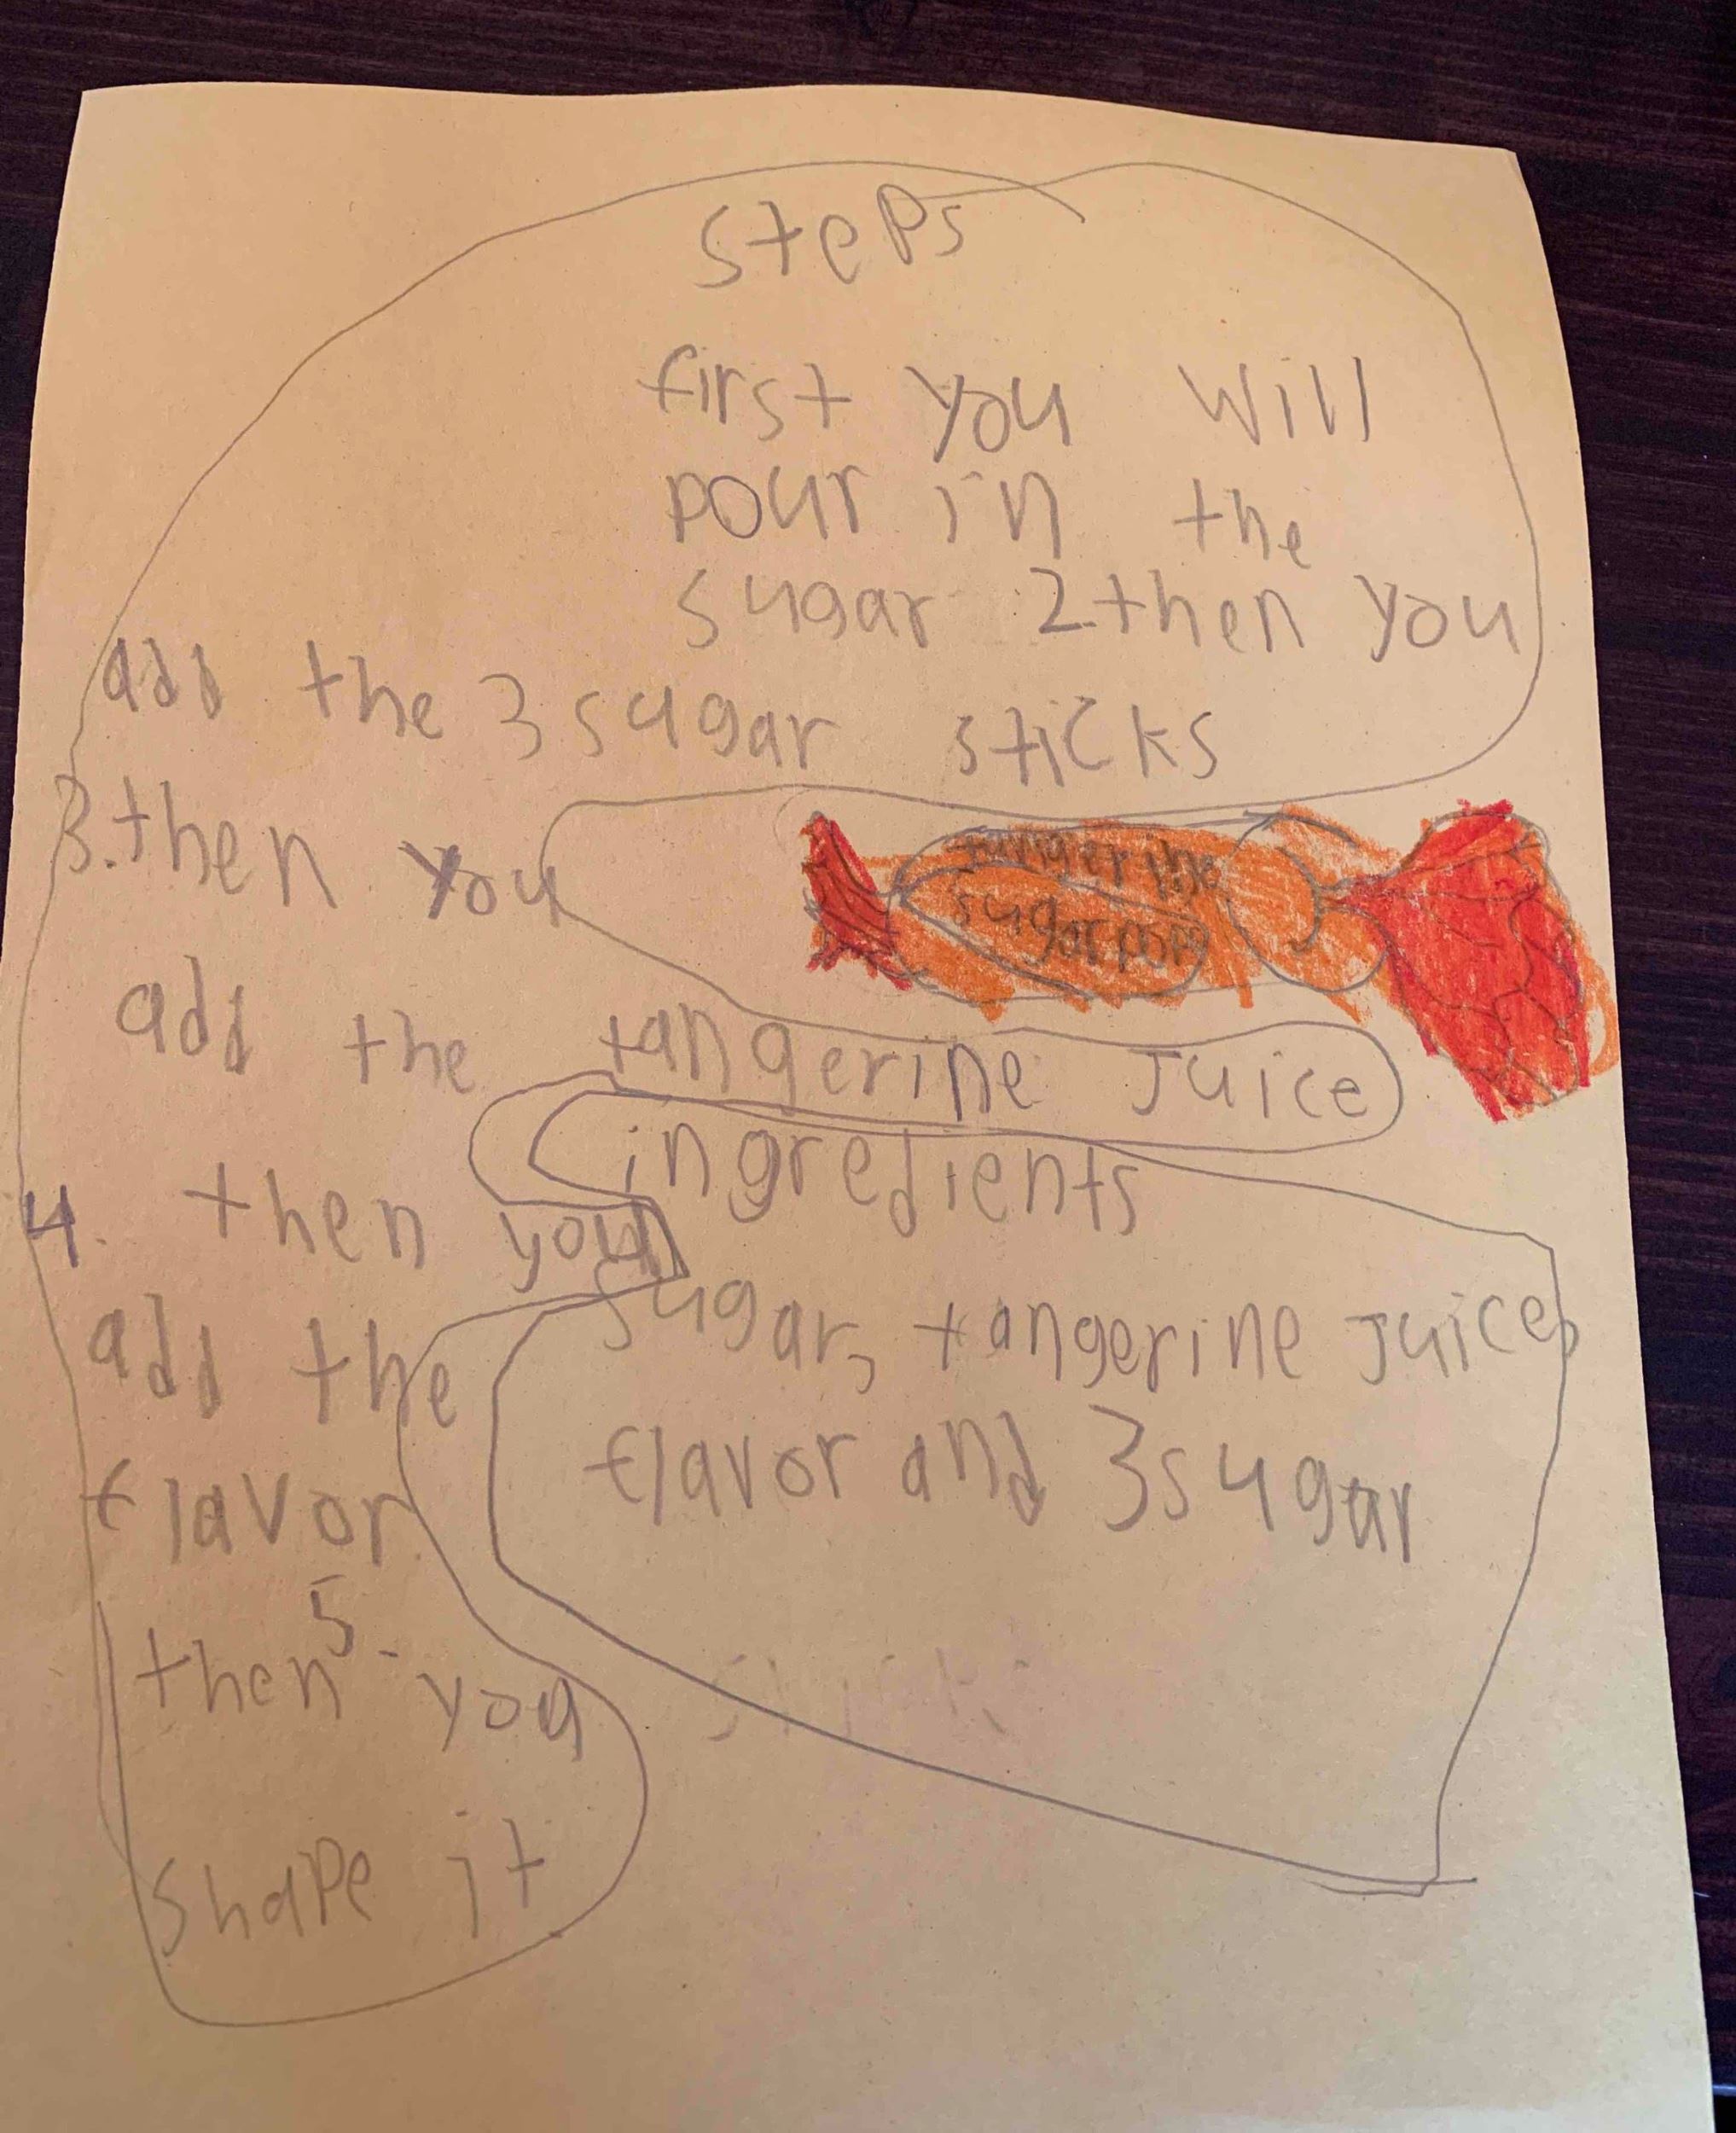 steps
first you will
pour in the
sugar 2.then you
add the 3 sugar sticks
3.then you
add the tangerine juice
4. then you
add the
flavor
5.
then you
shape it
tangerine
sugar pops
ingredients
sugar, tangerine juice,
flavor and 3 sugar
sticks